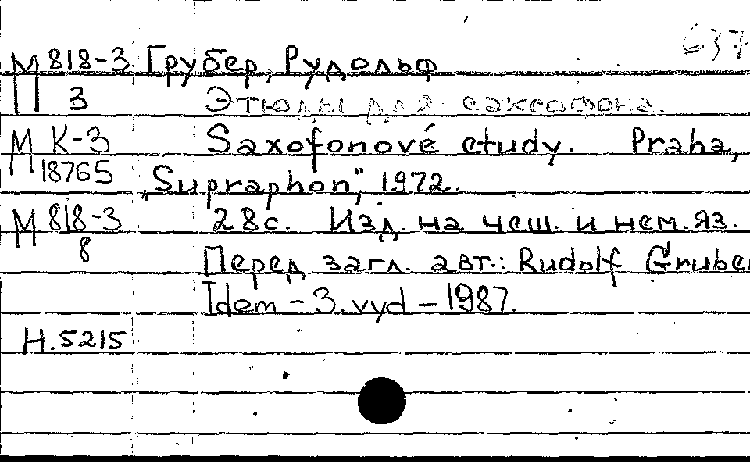 637
М 818-3 Грубер, Рудольф
3 Этюды для саксофона.
М К-3 Saxofonové etudy. Praha,
18765 „Supraphon", 1972.
М 818-3 28с. Изд. на чеш. и нем. яз.
8 Перед загл. авт.: Rudolf Gruber
Idem - 3. vyd - 1987.
Н. 5215